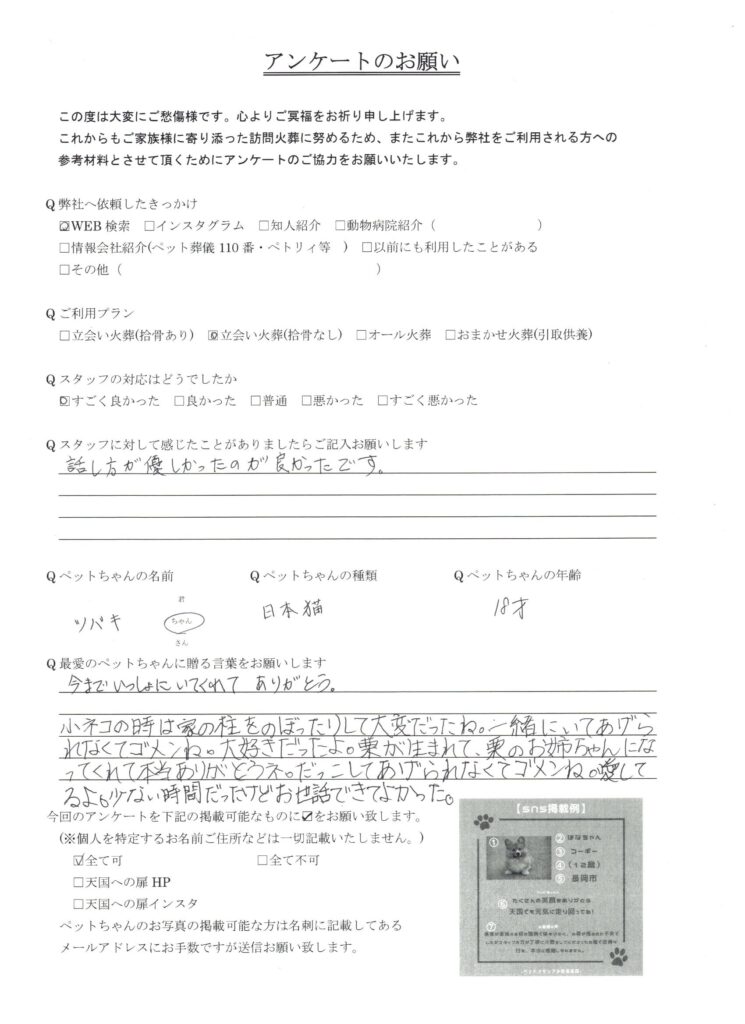 アンケートのお願い
この度は大変にご愁傷様です。心よりご冥福をお祈り申し上げます。
これからもご家族様に寄り添った訪問火葬に努めるため、またこれから弊社をご利用される方への
参考材料とさせて頂くためにアンケートのご協力をお願いいたします。
Q 弊社へ依頼したきっかけ
☑WEB 検索 □インスタグラム □知人紹介 □動物病院紹介（ ）
□情報会社紹介(ペット葬儀 110 番・ペトリィ等 ) □以前にも利用したことがある
□その他（ ）
Q ご利用プラン
□立会い火葬(拾骨あり) ☑立会い火葬(拾骨なし) □オール火葬 □おまかせ火葬(引取供養)
Q スタッフの対応はどうでしたか
☑すごく良かった □良かった □普通 □悪かった □すごく悪かった
Q スタッフに対して感じたことがありましたらご記入お願いします
話し方が優しかったのが良かったです。
Q ペットちゃんの名前 Q ペットちゃんの種類 Q ペットちゃんの年齢
君
ツバキ ちゃん 日本猫 18才
さん
Q 最愛のペットちゃんに贈る言葉をお願いします
今までいっしょにいてくれて ありがとう。
小ネコの時は家の柱をのぼったりして大変だったね。一緒にいてあげら
れなくてゴメンね。大好きだったよ。栗が生まれて、栗のお姉ちゃんにな
ってくれて本当ありがとうネ。だっこしてあげられなくてゴメンね。愛して
るよ。少ない時間だったけどお世話できてよかった。
今回のアンケートを下記の掲載可能なものに☑をお願い致します。
(※個人を特定するお名前ご住所などは一切記載いたしません。)
☑全て可 □全て不可
□天国への扉 HP
□天国への扉インスタ
ペットちゃんのお写真の掲載可能な方は名刺に記載してある
メールアドレスにお手数ですが送信お願い致します。
【sns掲載例】
① ② はなちゃん
③ コーギー
④ （12歳）
⑤ 長岡市
⑥ たくさんの笑顔をありがとう
天国でも元気に走り回ってね！
⑦